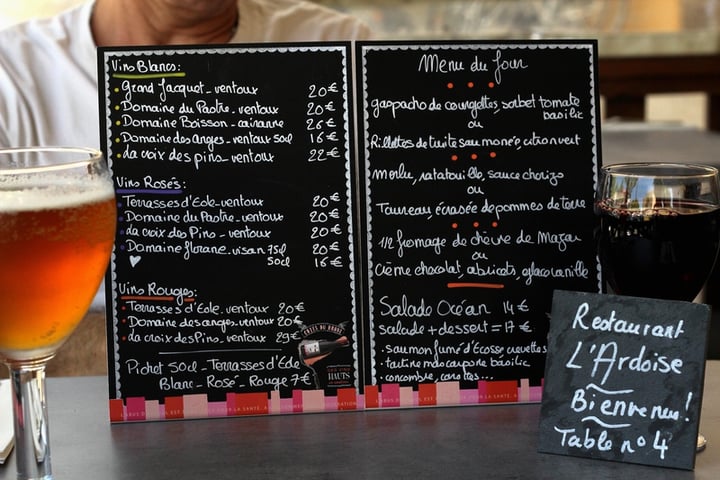 Vins Blancs:
Grand Jacquot - ventoux 20€
Domaine du Paotre - ventoux 20€
Domaine Boisson - cairanne 26€
Domaine des anges - ventoux 50cl 16€
La croix des pins - ventoux 22€
Vins Rosés:
Terrasses d'Eole - ventoux 20€
Domaine du Paotre - ventoux 20€
La croix des Pins - ventoux 20€
Domaine florane - visan 75cl 20€
50cl 16€
Vins Rouges:
Terrasses d'Eole - ventoux 20€
Domaine des anges - ventoux 20€
La croix des Pins - ventoux 29€
Pichet 50cl - Terrasses d'Eole
Blanc - Rosé - Rouge 7€
CÔTES DU RHÔNE
HAUTS
Menu du Jour
gaspacho de courgettes, sorbet tomate
basilic
ou
Rillettes de truite saumonée, citron vert
Merlu, ratatouille, sauce chorizo
ou
Taureau, écrasée de pommes de terre
1/2 fromage de chèvre de Mazan
ou
Crème chocolat, abricots, glace vanille
Salade Océan 14€
salade + dessert = 17€
. saumon fumé d'Ecosse, crevettes
. tartine mascarpone basilic
concombre, carottes...
L'ABUS D'ALCOOL EST DANGEREUX POUR LA SANTÉ, A CONSOMMER AVEC MODÉRATION
Restaurant
L'Ardoise
Bienvenus!
Table n°4